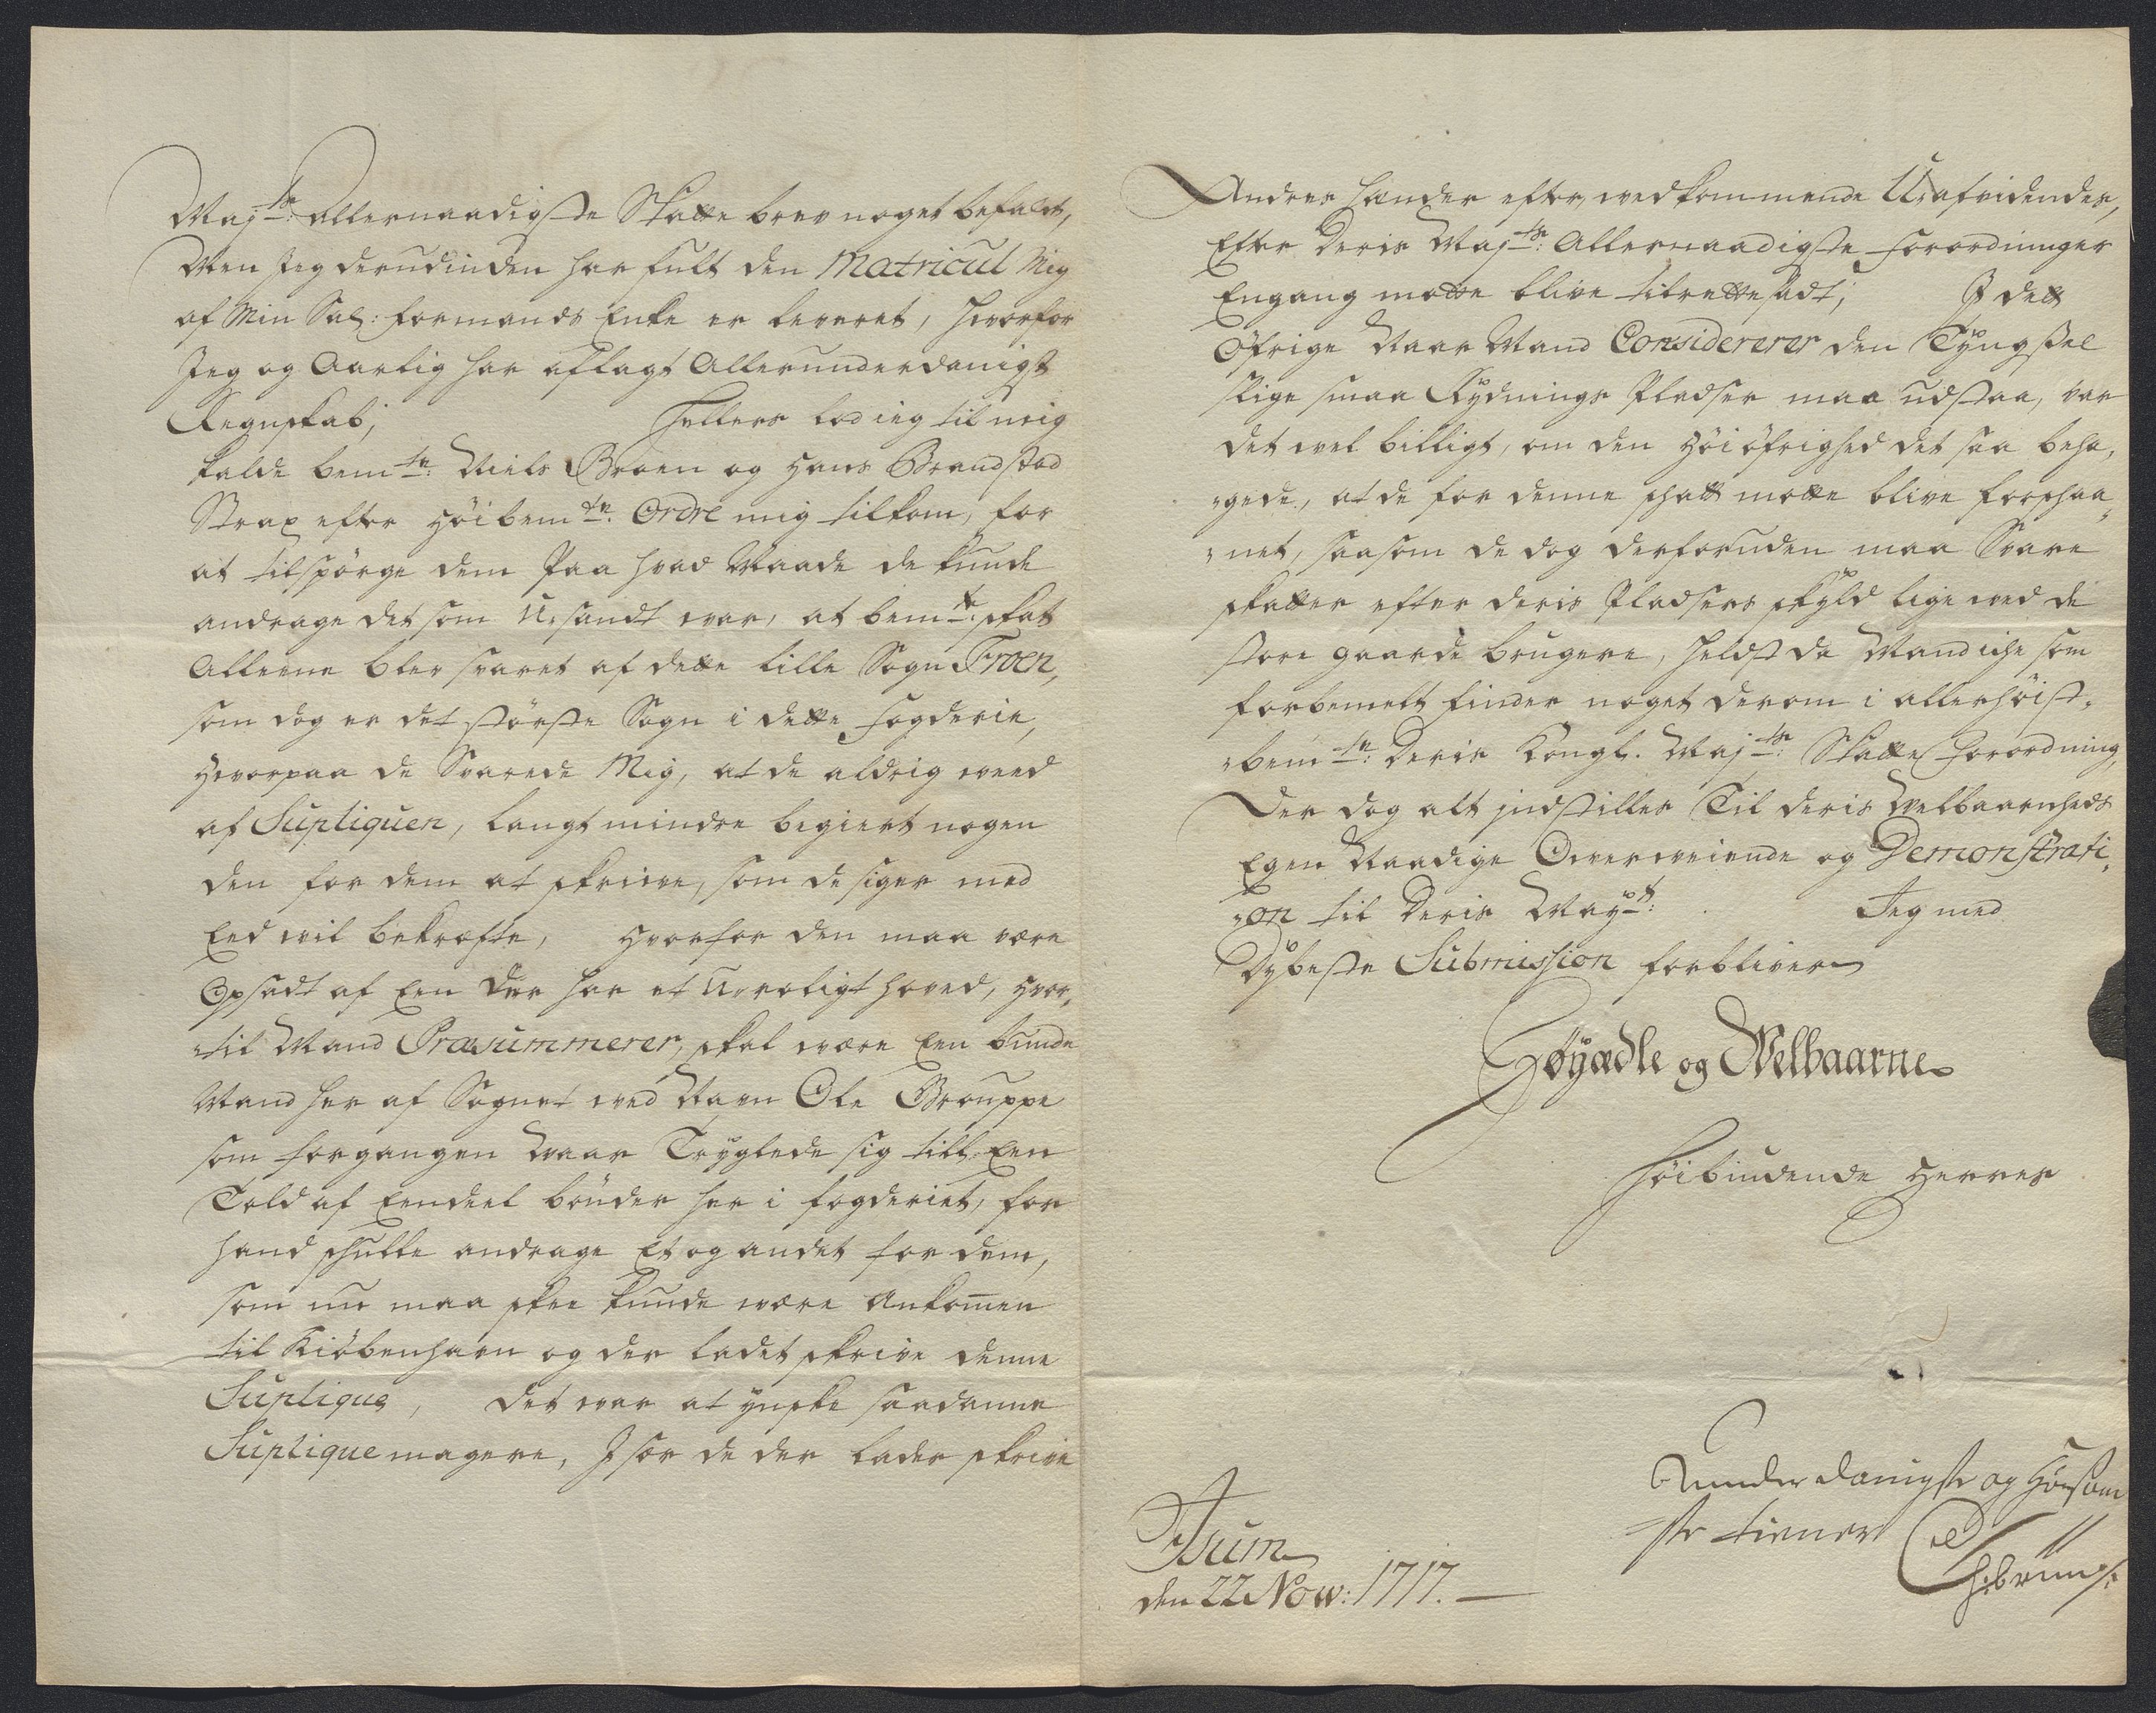 Majts: Allernaadigste Skatte brev noget befalet,
Men Jeg derudinden har fult den Matricul Mig
af Min Sal: formands Enke er leveret, hvorfor
Jeg og Aarlig har aflagt Allerunderdanigst
Regnskab; Hellers lod ieg til mig
kalde bemte: Niels Broen og Hans Brandstad
Strax efter Høibemte: Ordre mig tilkom, for
at tilspörge dem paa hvad Maade de kunde
andrage det som U,sandt war, at bemte: skat
Alleene blev svaret af dette lille Sogn Froen,
som dog er det störste Sogn i dette fogderie,
Hvorpaa de Svarede Mig, at de aldrig weed
af Supliquen, langt mindre begiert nogen
den for dem at skriwe, som de siger med
Eed wil bekræfte, Hvorfor den maa være
Opsadt af Een der har et U,roligt hoved, hvor,
„til Mand Præsummerer, skal wære Een bunde
Mand her af Sognet wed Nafn Ole Grouppe
som forgangen Waar Tryglede sig till Een
Told af Eendeel bönder her i fogderiet, for
hand skulle andrage Et og andet for dem,
som nu maa skee kunde wære Ankomen
til Kiöbenhavn og der ladet skrive denne
Suplique, det war at ynske saadanne
Suplique magere, Jsær de der lader skrive
Andres hænder efter, wedkommende U,afvidendes,
Efter Deris Majts: Allernaadigste forordninger
Engang motte blive tilrettesadt; J dett
Öfrige Naar Mand Considererer den Tÿngsel
slige smaa Rÿdnings Pladser maa udstaa, var
det wel billigt, om den höi öfrighed det saa beha,
„gede, at de for denne skatt motte blive forskaa„
„net, saasom de dog derforuden maa Svare
skatter efter deris Pladsers skÿld lige wed de
store gaarde brugere, heldst da Mand iche som
forbemelt finder noget derom i allerhöist„
„bemte: Deris Kongl. Majts: Skatte forordning,
Der dog alt jndstilles Til deris Welbaarenheds
Egen Naadige Overweiende og Demonstrati„
„on til Deris Mayts: Jeg med
Dÿbeste Submission forbliver
Høyædle og Welbaarne
Höibiudende Herres
Aunderdanigste og Hörsom
„ste tiener
Isum
den 22 Now: 1717.